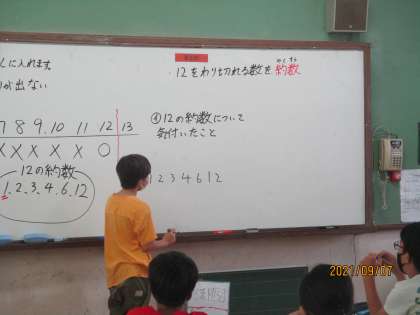 しに入れます
が出ない
12をわり切れる数を、約数
やくすう
7 8 9. 10 11 12 13
X X X X X ○
12の約数
1. 2. 3. 4. 6. 12
④12の約数について
気付いたこと
2 3 4 6 12
2021/09/07